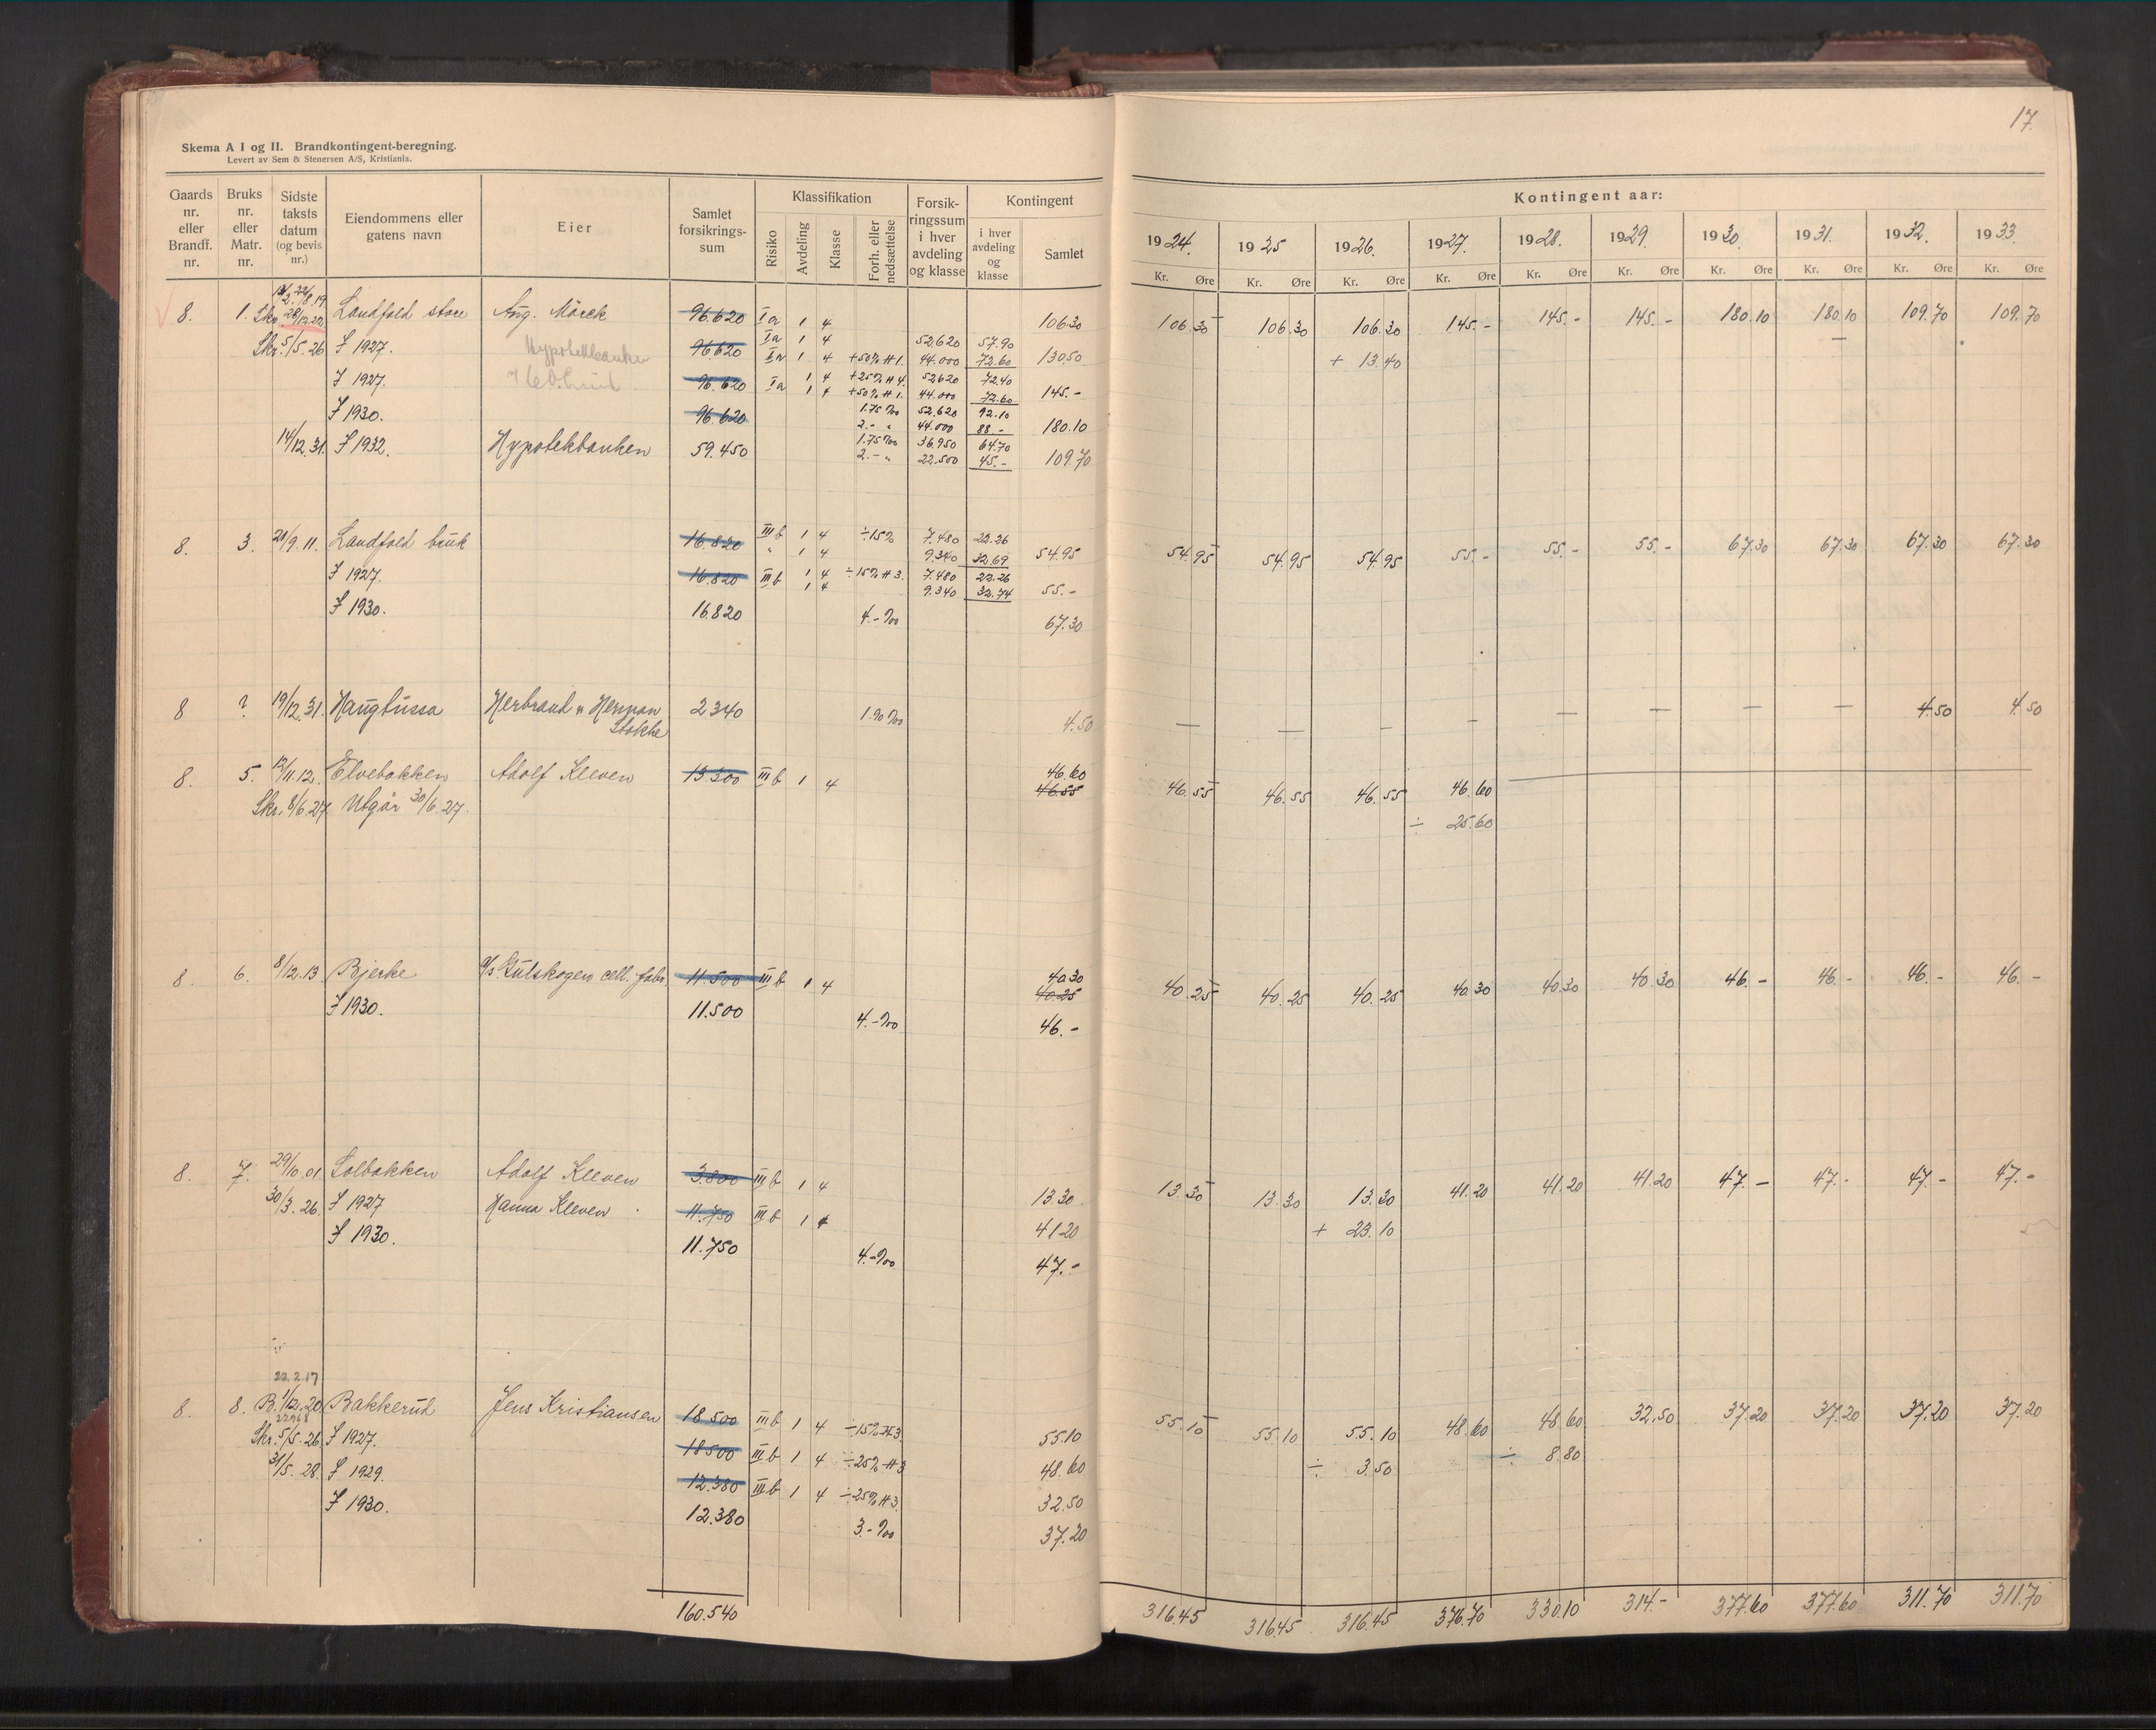 17.
Skema A I og II. Brandkontingent-beregning.
Levert av Sem & Stenersen A/S, Kristiania.
Gaards nr. eller Brandf. nr.
Bruks nr. eller Matr. nr.
Sidste taksts datum (og bevis nr.)
Eiendommens eller gatens navn
Eier
Samlet forsikrings-sum
Klassifikation
Risiko
Avdeling
Klasse
Forh. eller nedsættelse
Forsik-ringssum i hver avdeling og klasse
Kontingent
i hver avdeling og klasse
Samlet
Kontingent aar:
1924. 1925 1926. 1927. 1928. 1929. 1930. 1931. 1932. 1933.
Kr. Øre Kr. Øre Kr. Øre Kr. Øre Kr. Øre Kr. Øre Kr. Øre Kr. Øre Kr. Øre Kr. Øre
8. 1. Landfald store Aug. Mörck 96.620 Ia 1 4 106.30 106.30 106.30 106.30 145.- 145.- 145.- 180.10 180.10 109.70 109.70
Skr. 5/5.26 F 1927. Hypotekbanken 96620 Ia 1 4 52.620 57.90
Ia 1 4 +50% H 1. 44.000 72.60 130.50 + 13.40
F 1927. 96.620 Ia 1 4 +25% H 4. 52620 72.40
1 4 +50% H 1. 44.000 72.60 145.-
F 1930. 96.620 1.75 ‰ 52.620 92.10
2.- " 44.000 88.- 180.10
14/12.31. F 1932. Hypotekbanken 59.450 1.75 ‰ 36.950 64.70
2.- " 22.500 45.- 109.70
8. 3. 21/9.11. Landfald bruk 16.820 IIIb 1 4 ÷15% 7.480 22.26
" 1 4 9.340 32.69 54.95 54.95 54.95 54.95 55.- 55.- 55.- 67.30 67.30 67.30 67.30
F 1927. 16.820 IIIb 1 4 ÷15% H 3. 7.480 22.26
1 4 9.340 32.74 55.-
F 1930. 16.820 4.-‰ 67.30
8 ? 19/12.31. Haugtussa Herbrand & Herman Stokke 2340 1.90‰ 4.50 — — — — — — — — 4.50 4.50
8. 5. 12/11.12. Elvebakken Adolf Kleven 13.300 IIIb 1 4 46.60
46.55 46.55 46.55 46.55 46.60
Skr. 8/6.27. Utgår 30/6.27. ÷ 25.60
8 6. 8/12.13 Bjerke A/s Gulskogen cell. fabr. 11.500 IIIb 1 4 40.30
40.25 40.25 40.25 40.25 40.30 40.30 40.30 46.- 46.- 46.- 46.-
F 1930. 11.500 4.-‰ 46.-
8. 7. 29/10.01 Solbakken Adolf Kleven 3.800 IIIb 1 4 13.30 13.30 13.30 13.30 41.20 41.20 41.20 47.- 47.- 47.- 47.-
30/3.26. F 1927 Hanna Kleven 11.750 IIIb 1 4 41.20 + 23.10
F 1930. 11.750 4.-‰ 47.-
22.2.17
8. 8. B. 1/12.20 Bakkerud Jens Kristiansen 18.500 IIIb 1 4 ÷15% H 3. 55.10 55.10 55.10 55.10 48.60 48.60 32.50 37.20 37.20 37.20 37.20
Skr. 5/5.26 F 1927. 18500 IIIb 1 4 ÷25% H 3 48.60 ÷ 3.50 ÷ 8.80
31/5.28. F 1929. 12.380 IIIb 1 4 ÷25% H 3. 32.50
F 1930. 12.380 3.-‰ 37.20
160.540 316.45 316.45 316.45 376.70 330.10 314.- 377.60 377.60 311.70 311.70